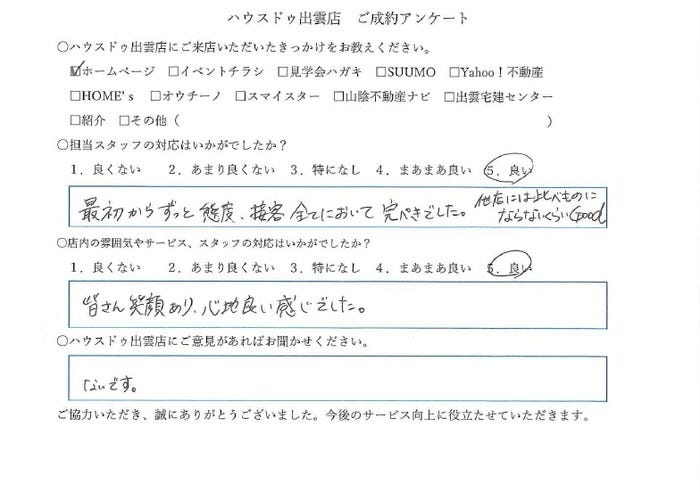 ハウスドゥ出雲店　ご成約アンケート
○ハウスドゥ出雲店にご来店いただいたきっかけをお教えください。
☑ホームページ　□イベントチラシ　□見学会ハガキ　□SUUMO　□Yahoo！不動産
□HOME's　□オウチーノ　□スマイスター　□山陰不動産ナビ　□出雲宅建センター
□紹介　□その他（　　　　　　　　　　）
○担当スタッフの対応はいかがでしたか？
1．良くない　2．あまり良くない　3．特になし　4．まあまあ良い　5．良い
最初からずっと態度、接客全てにおいて完ペきでした。他店には比べものに
ならないくらいGood
○店内の雰囲気やサービス、スタッフの対応はいかがでしたか？
1．良くない　2．あまり良くない　3．特になし　4．まあまあ良い　5．良い
皆さん笑顔あり、心地良い感じでした。
○ハウスドゥ出雲店にご意見があればお聞かせください。
ないです。
ご協力いただき、誠にありがとうございました。今後のサービス向上に役立たせていただきます。